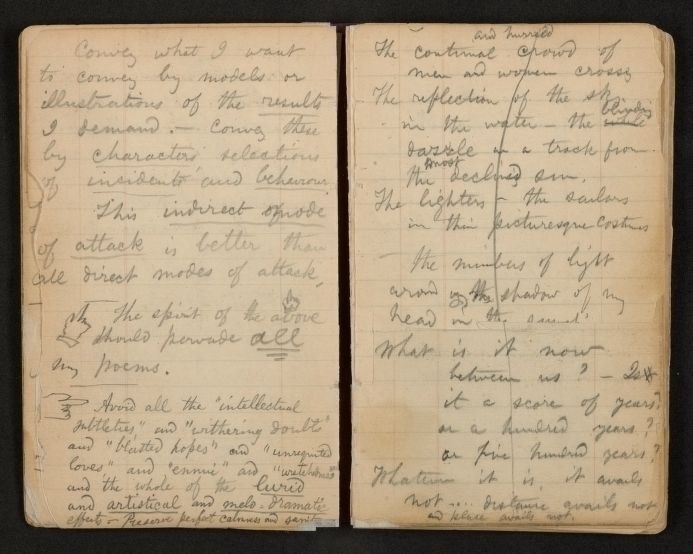 Convey what I want
to convey by models or
illustrations of the results
I demand. — Convey these
by characters selections
of incidents and behaviour.
This indirect mode
of attack is better than
all direct modes of attack.
The spirit of the above
should pervade all
my poems.
Avoid all the "intellectual
subtleties" and "withering doubts"
and "blasted hopes" and "unrequited
loves" and "ennui" and "wretchedness"
and the whole of the lurid
and artistical and melo-dramatic
effects — Preserve perfect calmness and sanity
and hurried
The continual crowd of
men and women crossg
The reflection of the sky
blinding
in the water — the
dazzle in a track from
most
the declined sun,
The lighters — the sailors
in their picturesque costumes
the nimbus of light
around the shadow of my
head in the
What is it now
between us? — Is
it a score of years?
or a hundred years?
or five hundred years?
Whatever it is, it avails
not .... distance avails not
and place avails not.